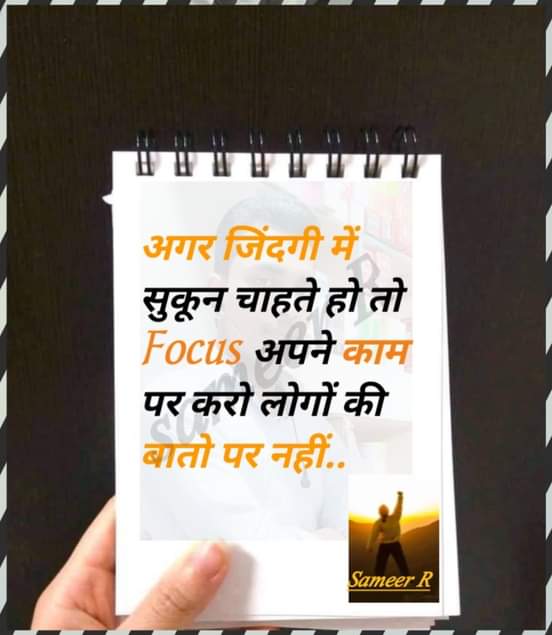 अगर जिंदगी में
सुकून चाहते हो तो
Focus अपने काम
पर करो लोगों की
बातो पर नहीं..
Sameer R
sameer R